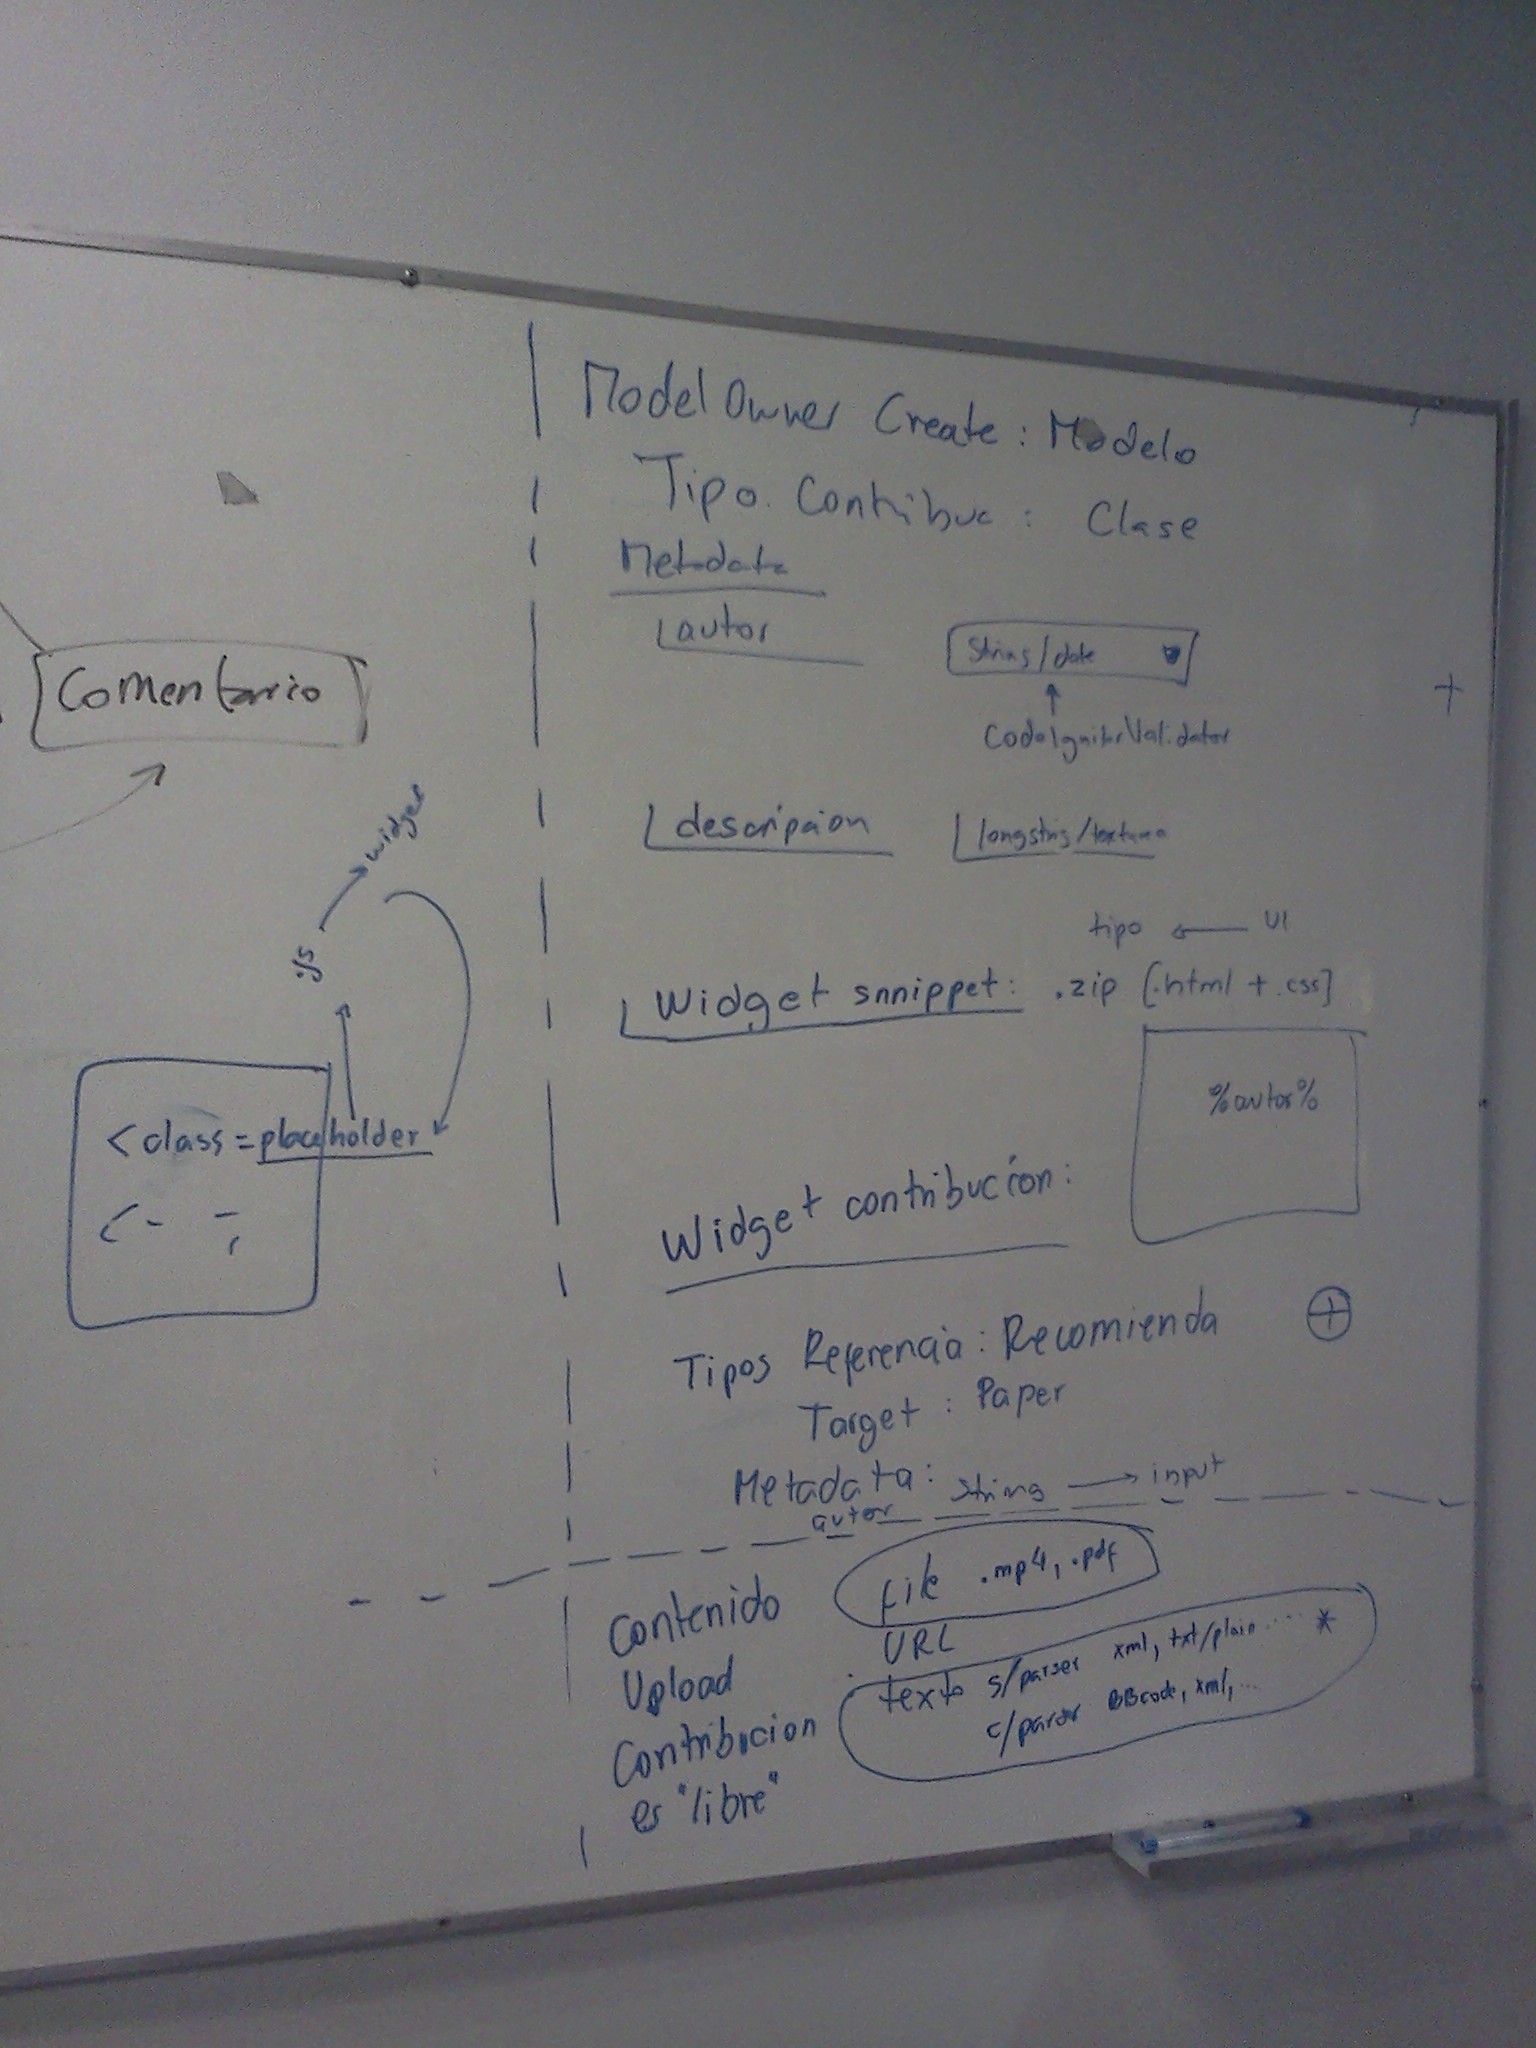 Comentario
widget
.js
<class=placeholder
Model Owner Create: Modelo
Tipo. Contribuc: Clase
Metadata
autor
String/date
CodeIgniterValidator
descripcion
longstring/textarea
tipo ← UI
Widget snnippet: .zip [.html + .css]
%autor%
Widget contribución:
Tipos Referencia: Recomienda +
Target: Paper
Metadata: String → input
autor
Contenido
Upload
Contribucion
es "libre"
file .mp4, .pdf
URL
texto s/parser xml, txt/plain.... *
c/parser BBcode, xml,...